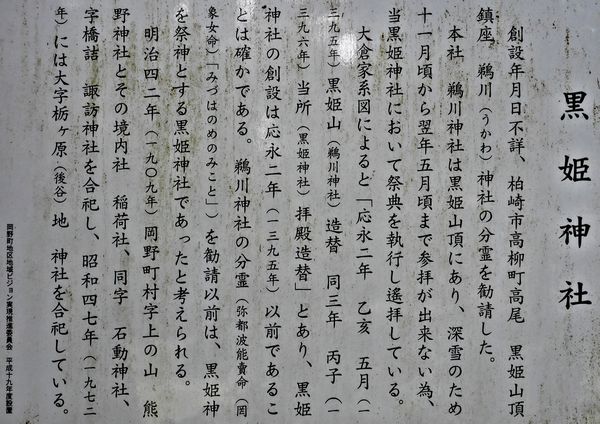 黒姫神社
創設年月日不詳、柏崎市高柳町高尾　黒姫山頂
鎮座　鵜川（うかわ）神社の分霊を勧請した。
本社　鵜川神社は黒姫山頂にあり、深雪のため
十一月頃から翌年五月頃まで参拝が出来ない為、
当黒姫神社において祭典を執行し遙拝している。
大倉家系図によると「応永二年　乙亥　五月（一
三九五年）黒姫山（鵜川神社）造替　同三年　丙子（一
三九六年）当所（黒姫神社）拝殿造替」とあり、黒姫
神社の創設は応永二年（一三九五年）以前であるこ
とは確かである。　鵜川神社の分霊（弥都波能賣命（罔
象女命）「みづはのめのみこと」）を勧請以前は、黒姫神
を祭神とする黒姫神社であったと考えられる。
明治四二年（一九〇九年）岡野町村字上の山　熊
野神社とその境内社　稲荷社、同字　石動神社、
字橋詰　諏訪神社を合祀し、昭和四七年（一九七二
年）には大字栃ヶ原（後谷）地　神社を合祀している。
岡野町地区地域ビジョン実現推進委員会　平成十九年度設置